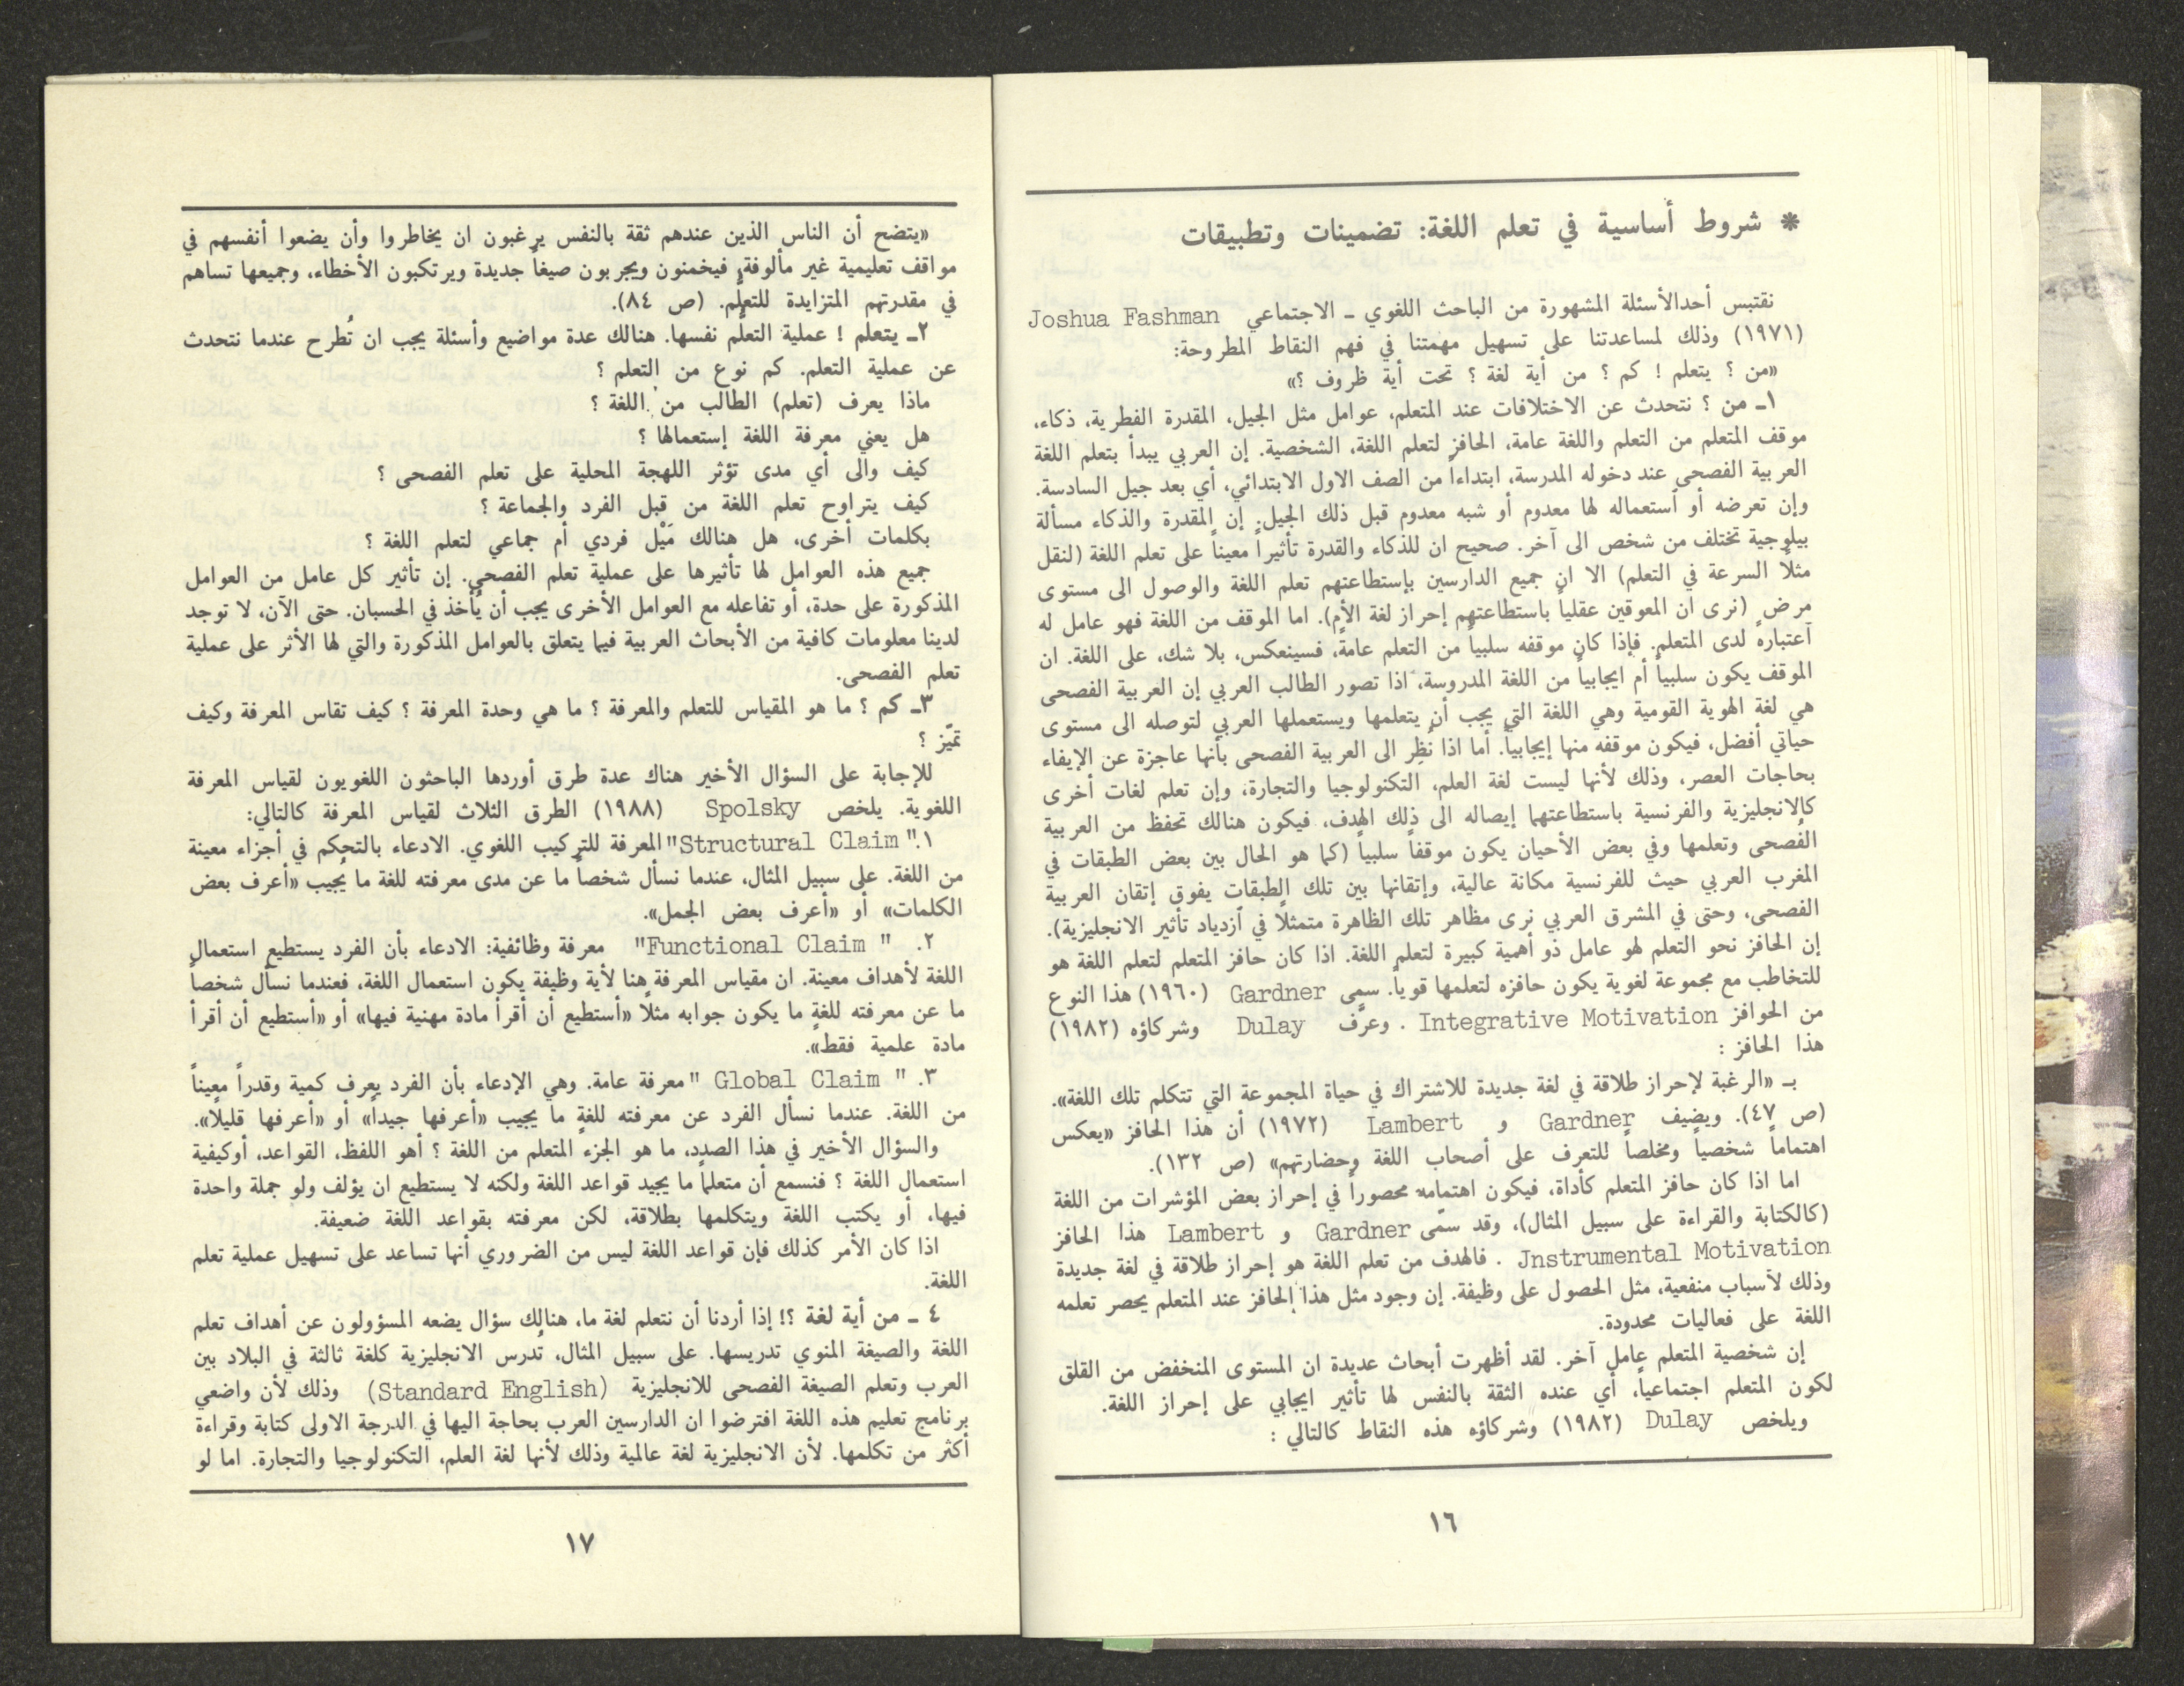 * شروط أساسية في تعلم اللغة: تضمينات وتطبيقات
نقتبس أحدالأسئلة المشهورة من الباحث اللغوي ـ الاجتماعي Joshua Fashman
(١٩٧١) وذلك لمساعدتنا على تسهيل مهمتنا في فهم النقاط المطروحة:
«من ؟ يتعلم ! كم ؟ من أية لغة ؟ تحت أية ظروف ؟»
١ـ من ؟ نتحدث عن الاختلافات عند المتعلم، عوامل مثل الجيل، المقدرة الفطرية، ذكاء،
موقف المتعلم من التعلم واللغة عامة، الحافز لتعلم اللغة، الشخصية. إن العربي يبدأ بتعلم اللغة
العربية الفصحى عند دخوله المدرسة، ابتداءاً من الصف الاول الابتدائي، أي بعد جيل السادسة.
وإن تعرضه أو أستعماله لها معدوم أو شبه معدوم قبل ذلك الجيل. إن المقدرة والذكاء مسألة
بيلوجية تختلف من شخص الى آخر. صحيح ان للذكاء والقدرة تأثيراً معيناً على تعلم اللغة (لنقل
مثلاً السرعة في التعلم) الا ان جميع الدارسين بإستطاعتهم تعلم اللغة والوصول الى مستوى
مرض (نرى ان المعوقين عقلياً باستطاعتهم إحراز لغة الأم). اما الموقف من اللغة فهو عامل له
آعتباره لدى المتعلم. فإذا كان موقفه سلبياً من التعلم عامةً، فسينعكس، بلا شك، على اللغة. ان
الموقف يكون سلبياً أم ايجابياً من اللغة المدروسة، اذا تصور الطالب العربي إن العربية الفصحى
هي لغة الهوية القومية وهي اللغة التي يجب أن يتعلمها ويستعملها العربي لتوصله الى مستوى
حياتي أفضل، فيكون موقفه منها إيجابياً. أما اذا نُظِر الى العربية الفصحى بأنها عاجزة عن الإيفاء
بحاجات العصر، وذلك لأنها ليست لغة العلم، التكنولوجيا والتجارة، وإن تعلم لغات أخرى
كالانجليزية والفرنسية باستطاعتهما إيصاله الى ذلك الهدف، فيكون هنالك تحفظ من العربية
الفصحى وتعلمها وفي بعض الأحيان يكون موقفاً سلبياً (كما هو الحال بين بعض الطبقات في
المغرب العربي حيث للفرنسية مكانة عالية، وإتقانها بين تلك الطبقات يفوق إتقان العربية
الفصحى، وحتى في المشرق العربي نرى مظاهر تلك الظاهرة متمثلاً في أزدياد تأثير الانجليزية).
إن الحافز نحو التعلم لهو عامل ذو أهمية كبيرة لتعلم اللغة. اذا كان حافز المتعلم لتعلم اللغة هو
للتخاطب مع مجموعة لغوية يكون حافزه لتعلمها قوياً. سمى Gardner (١٩٦٠) هذا النوع
من الحوافز Integrative Motivation . وعرّف Dulay وشركاؤه (١٩٨٢)
هذا الحافز :
بـ «الرغبة لإحراز طلاقة في لغة جديدة للاشتراك في حياة المجموعة التي تتكلم تلك اللغة».
(ص ٤٧). ويضيف Gardner و Lambert (١٩٧٢) أن هذا الحافز «يعكس
اهتماماً شخصياً ومخلصاً للتعرف على أصحاب اللغة وحضارتهم» (ص ١٣٢).
اما اذا كان حافز المتعلم كأداة، فيكون اهتمامه محصوراً في إحراز بعض المؤشرات من اللغة
(كالكتابة والقراءة على سبيل المثال)، وقد سمّى Gardner و Lambert هذا الحافز
Jnstrumental Motivation . فالهدف من تعلم اللغة هو إحراز طلاقة في لغة جديدة
وذلك لأسباب منفعية، مثل الحصول على وظيفة. إن وجود مثل هذا الحافز عند المتعلم يحصر تعلمه
اللغة على فعاليات محدودة.
إن شخصية المتعلم عامل آخر. لقد أظهرت أبحاث عديدة ان المستوى المنخفض من القلق
لكون المتعلم اجتماعياً، أي عنده الثقة بالنفس لها تأثير ايجابي على إحراز اللغة.
ويلخص Dulay (١٩٨٢) وشركاؤه هذه النقاط كالتالي :
١٦
«يتضح أن الناس الذين عندهم ثقة بالنفس يرغبون ان يخاطروا وأن يضعوا أنفسهم في
مواقف تعليمية غير مألوفة، فيخمنون ويجربون صيغاً جديدة ويرتكبون الأخطاء، وجميعها تساهم
في مقدرتهم المتزايدة للتعلُّم. (ص ٨٤).
٢ـ يتعلم ! عملية التعلُّم نفسها. هنالك عدة مواضيع وأسئلة يجب ان تُطرح عندما نتحدث
عن عملية التعلم. كم نوع من التعلم ؟
ماذا يعرف (تعلم) الطالب من اللغة ؟
هل يعني معرفة اللغة إستعمالها ؟
كيف والى أي مدى تؤثر اللهجة المحلية على تعلم الفصحى ؟
كيف يتراوح تعلم اللغة من قبل الفرد والجماعة ؟
بكلمات أخرى، هل هنالك مَيْل فردي أم جماعي لتعلم اللغة ؟
جميع هذه العوامل لها تأثيرها على عملية تعلم الفصحى. إن تأثير كل عامل من العوامل
المذكورة على حدة، أو تفاعله مع العوامل الأخرى يجب أن يُأخذ في الحسبان. حتى الآن، لا توجد
لدينا معلومات كافية من الأبحاث العربية فيما يتعلق بالعوامل المذكورة والتي لها الأثر على عملية
تعلم الفصحى.
٣ـ كم ؟ ما هو المقياس للتعلم والمعرفة ؟ ما هي وحدة المعرفة ؟ كيف تقاس المعرفة وكيف
تميّز ؟
للإجابة على السؤال الأخير هناك عدة طرق أوردها الباحثون اللغويون لقياس المعرفة
اللغوية. يلخص Spolsky (١٩٨٨) الطرق الثلاث لقياس المعرفة كالتالي:
١. "Structural Claim" المعرفة للتركيب اللغوي. الادعاء بالتحكم في أجزاء معينة
من اللغة. على سبيل المثال، عندما نسأل شخصاً ما عن مدى معرفته للغة ما يُجيب «أعرف بعض
الكلمات» أو «أعرف بعض الجمل».
٢. "Functional Claim " معرفة وظائفية: الادعاء بأن الفرد يستطيع استعمال
اللغة لأهداف معينة. ان مقياس المعرفة هنا لأية وظيفة يكون استعمال اللغة، فعندما نسأل شخصاً
ما عن معرفته للغةٍ ما يكون جوابه مثلاً «أستطيع أن أقرأ مادة مهنية فيها» أو «أستطيع أن أقرأ
مادة علمية فقط».
٣. " Global Claim " معرفة عامة. وهي الإدعاء بأن الفرد يعرف كمية وقدراً معيناً
من اللغة. عندما نسأل الفرد عن معرفته للغةٍ ما يجيب «أعرفها جيداً» أو «أعرفها قليلاً».
والسؤال الأخير في هذا الصدد، ما هو الجزء المتعلم من اللغة ؟ أهو اللفظ، القواعد، أوكيفية
استعمال اللغة ؟ فنسمع أن متعلماً ما يجيد قواعد اللغة ولكنه لا يستطيع ان يؤلف ولو جملة واحدة
فيها، أو يكتب اللغة ويتكلمها بطلاقة، لكن معرفته بقواعد اللغة ضعيفة.
اذا كان الأمر كذلك فإن قواعد اللغة ليس من الضروري أنها تساعد على تسهيل عملية تعلم
اللغة.
٤ ـ من أية لغة ؟! إذا أردنا أن نتعلم لغة ما، هنالك سؤال يضعه المسؤولون عن أهداف تعلم
اللغة والصيغة المنوي تدريسها. على سبيل المثال، تُدرس الانجليزية كلغة ثالثة في البلاد بين
العرب وتعلم الصيغة الفصحى للانجليزية (Standard English) وذلك لأن واضعي
برنامج تعليم هذه اللغة افترضوا ان الدارسين العرب بحاجة اليها في الدرجة الاولى كتابة وقراءة
أكثر من تكلمها. لأن الانجليزية لغة عالمية وذلك لأنها لغة العلم، التكنولوجيا والتجارة. اما لو
١٧